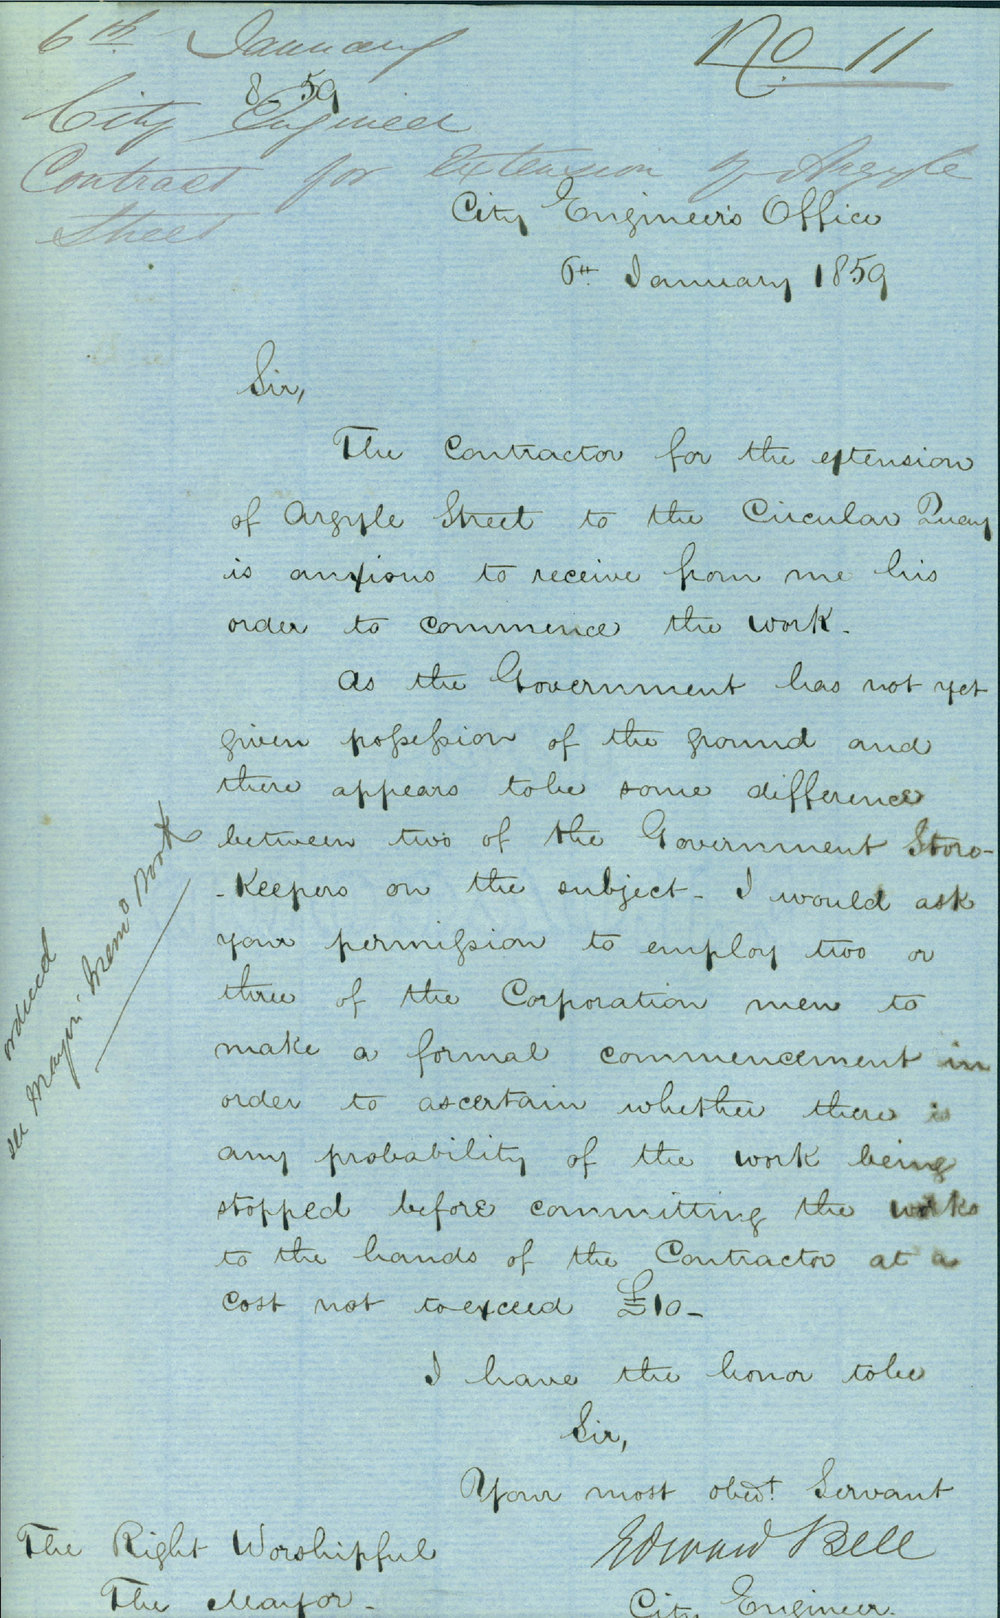 6th January
No 11
8 59
City Engineer
Contract for Extension of Argyle
Street
City Engineer's Office
6th January 1859
Sir,
The Contractor for the extension
of Argyle Street to the Circular Quay
is anxious to receive from me his
order to commence the work.
As the Government has not yet
given possession of the ground and
there appears to be some difference
between two of the Government Store-
-Keepers on the subject - I would ask
your permission to employ two or
three of the Corporation men to
make a formal commencement in
order to ascertain whether there is
any probability of the work being
stopped before committing the works
to the hands of the Contractor at a
cost not to exceed £10 -
I have the honor to be
Sir,
Your most obedt. Servant
Edward Bell
City Engineer.
The Right Worshipful
The Mayor -
ordered
see Mayor's Memo